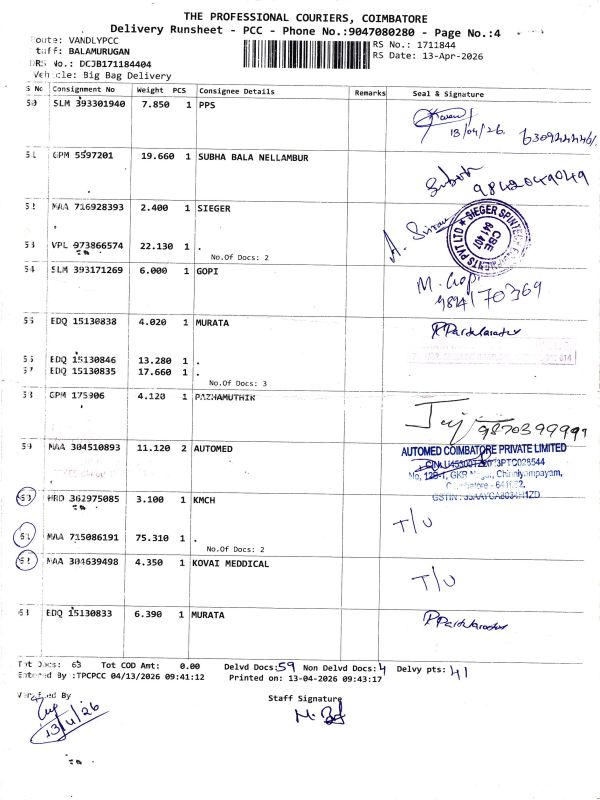 THE PROFESSIONAL COURIERS, COIMBATORE
Delivery Runsheet - PCC - Phone No.:9047080280 - Page No.:4
Route: VANDLYPCC
RS No.: 1711844
Staff: BALAMURUGAN
RS Date: 13-Apr-2026
DRS No.: DCJB171184404
Vehicle: Big Bag Delivery
S No Consignment No Weight PCS Consignee Details Remarks Seal & Signature
50 SLM 393301940 7.850 1 PPS
13/04/26.
51 GPM 5597201 19.660 1 SUBHA BALA NELLAMBUR
9842049049
52 MAA 716928393 2.400 1 SIEGER
CBE
641 407
53 VPL 973866574 22.130 1 .
No.Of Docs: 2
54 SLM 393171269 6.000 1 GOPI
M. Gopi
9894170369
55 EDQ 15130838 4.020 1 MURATA
56 EDQ 15130846 13.280 1 .
57 EDQ 15130835 17.660 1 .
No.Of Docs: 3
58 GPM 175906 4.120 1 PAZHAMUTHIR
9870399991
59 MAA 304510893 11.120 2 AUTOMED
AUTOMED COIMBATORE PRIVATE LIMITED
60 HRD 362975085 3.100 1 KMCH
T/U
61 MAA 715086191 75.310 1 .
No.Of Docs: 2
62 MAA 304639498 4.350 1 KOVAI MEDDICAL
T/U
63 EDQ 15130833 6.390 1 MURATA
Tot Docs: 63 Tot COD Amt: 0.00 Delvd Docs: 59 Non Delvd Docs: 4 Delvy pts: 41
Entered By :TPCPCC 04/13/2026 09:41:12 Printed on: 13-04-2026 09:43:17
Verified By
Staff Signature
13/4/26